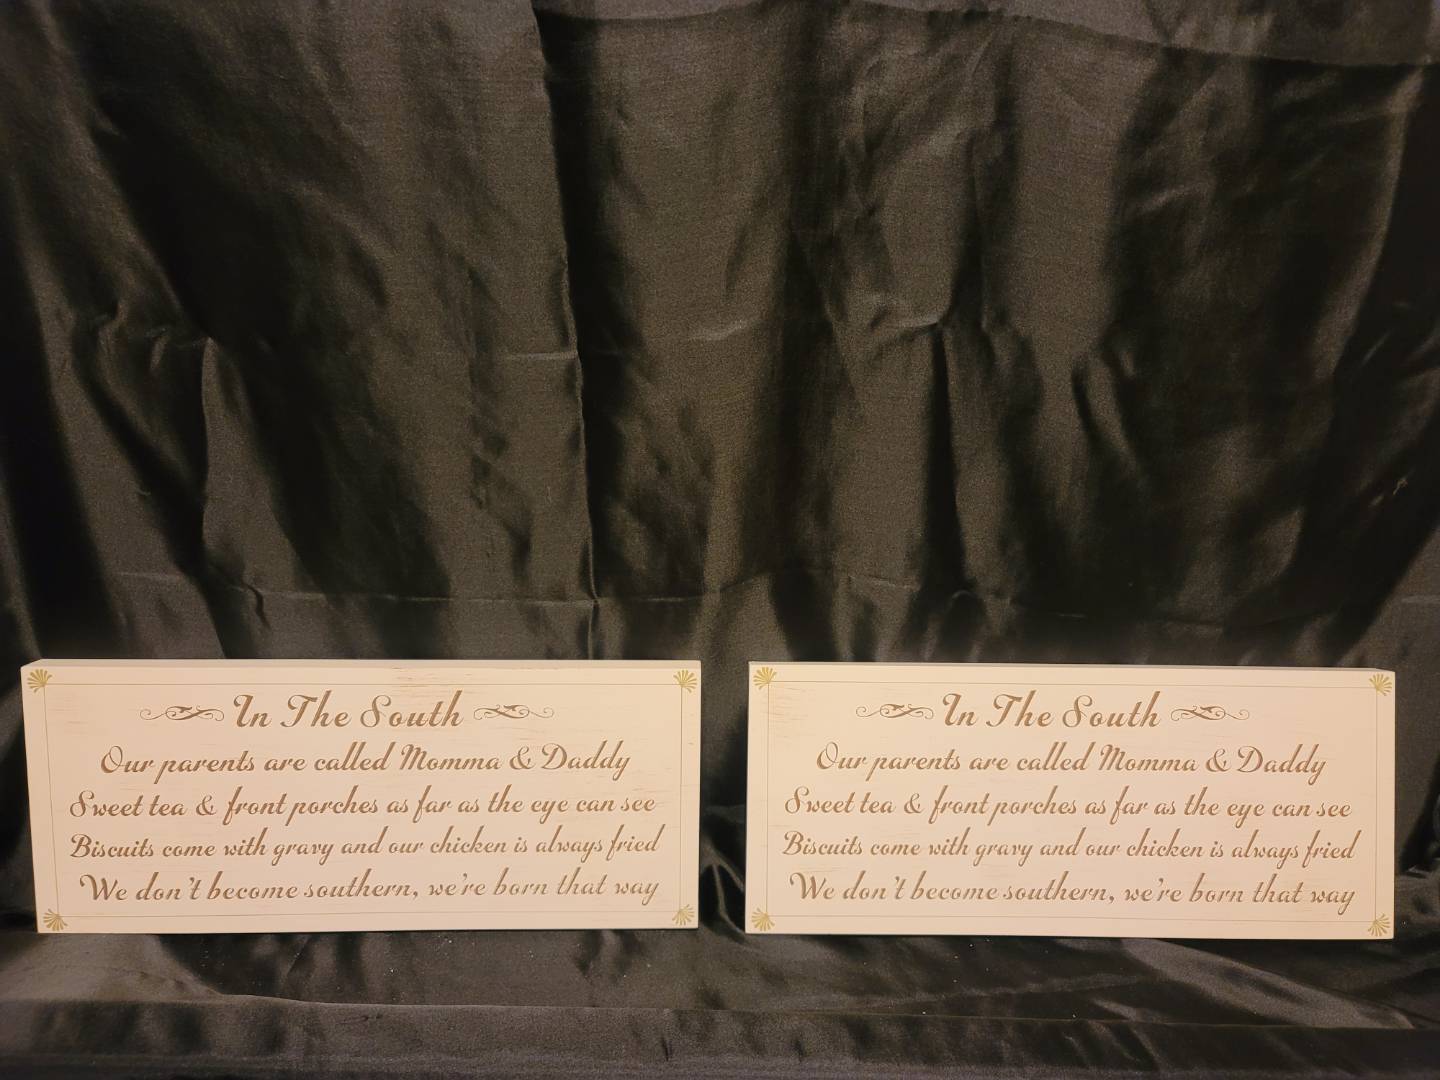 In The South
Our parents are called Momma & Daddy
Sweet tea & front porches as far as the eye can see
Biscuits come with gravy and our chicken is always fried
We don't become southern, we're born that way
In The South
Our parents are called Momma & Daddy
Sweet tea & front porches as far as the eye can see
Biscuits come with gravy and our chicken is always fried
We don't become southern, we're born that way